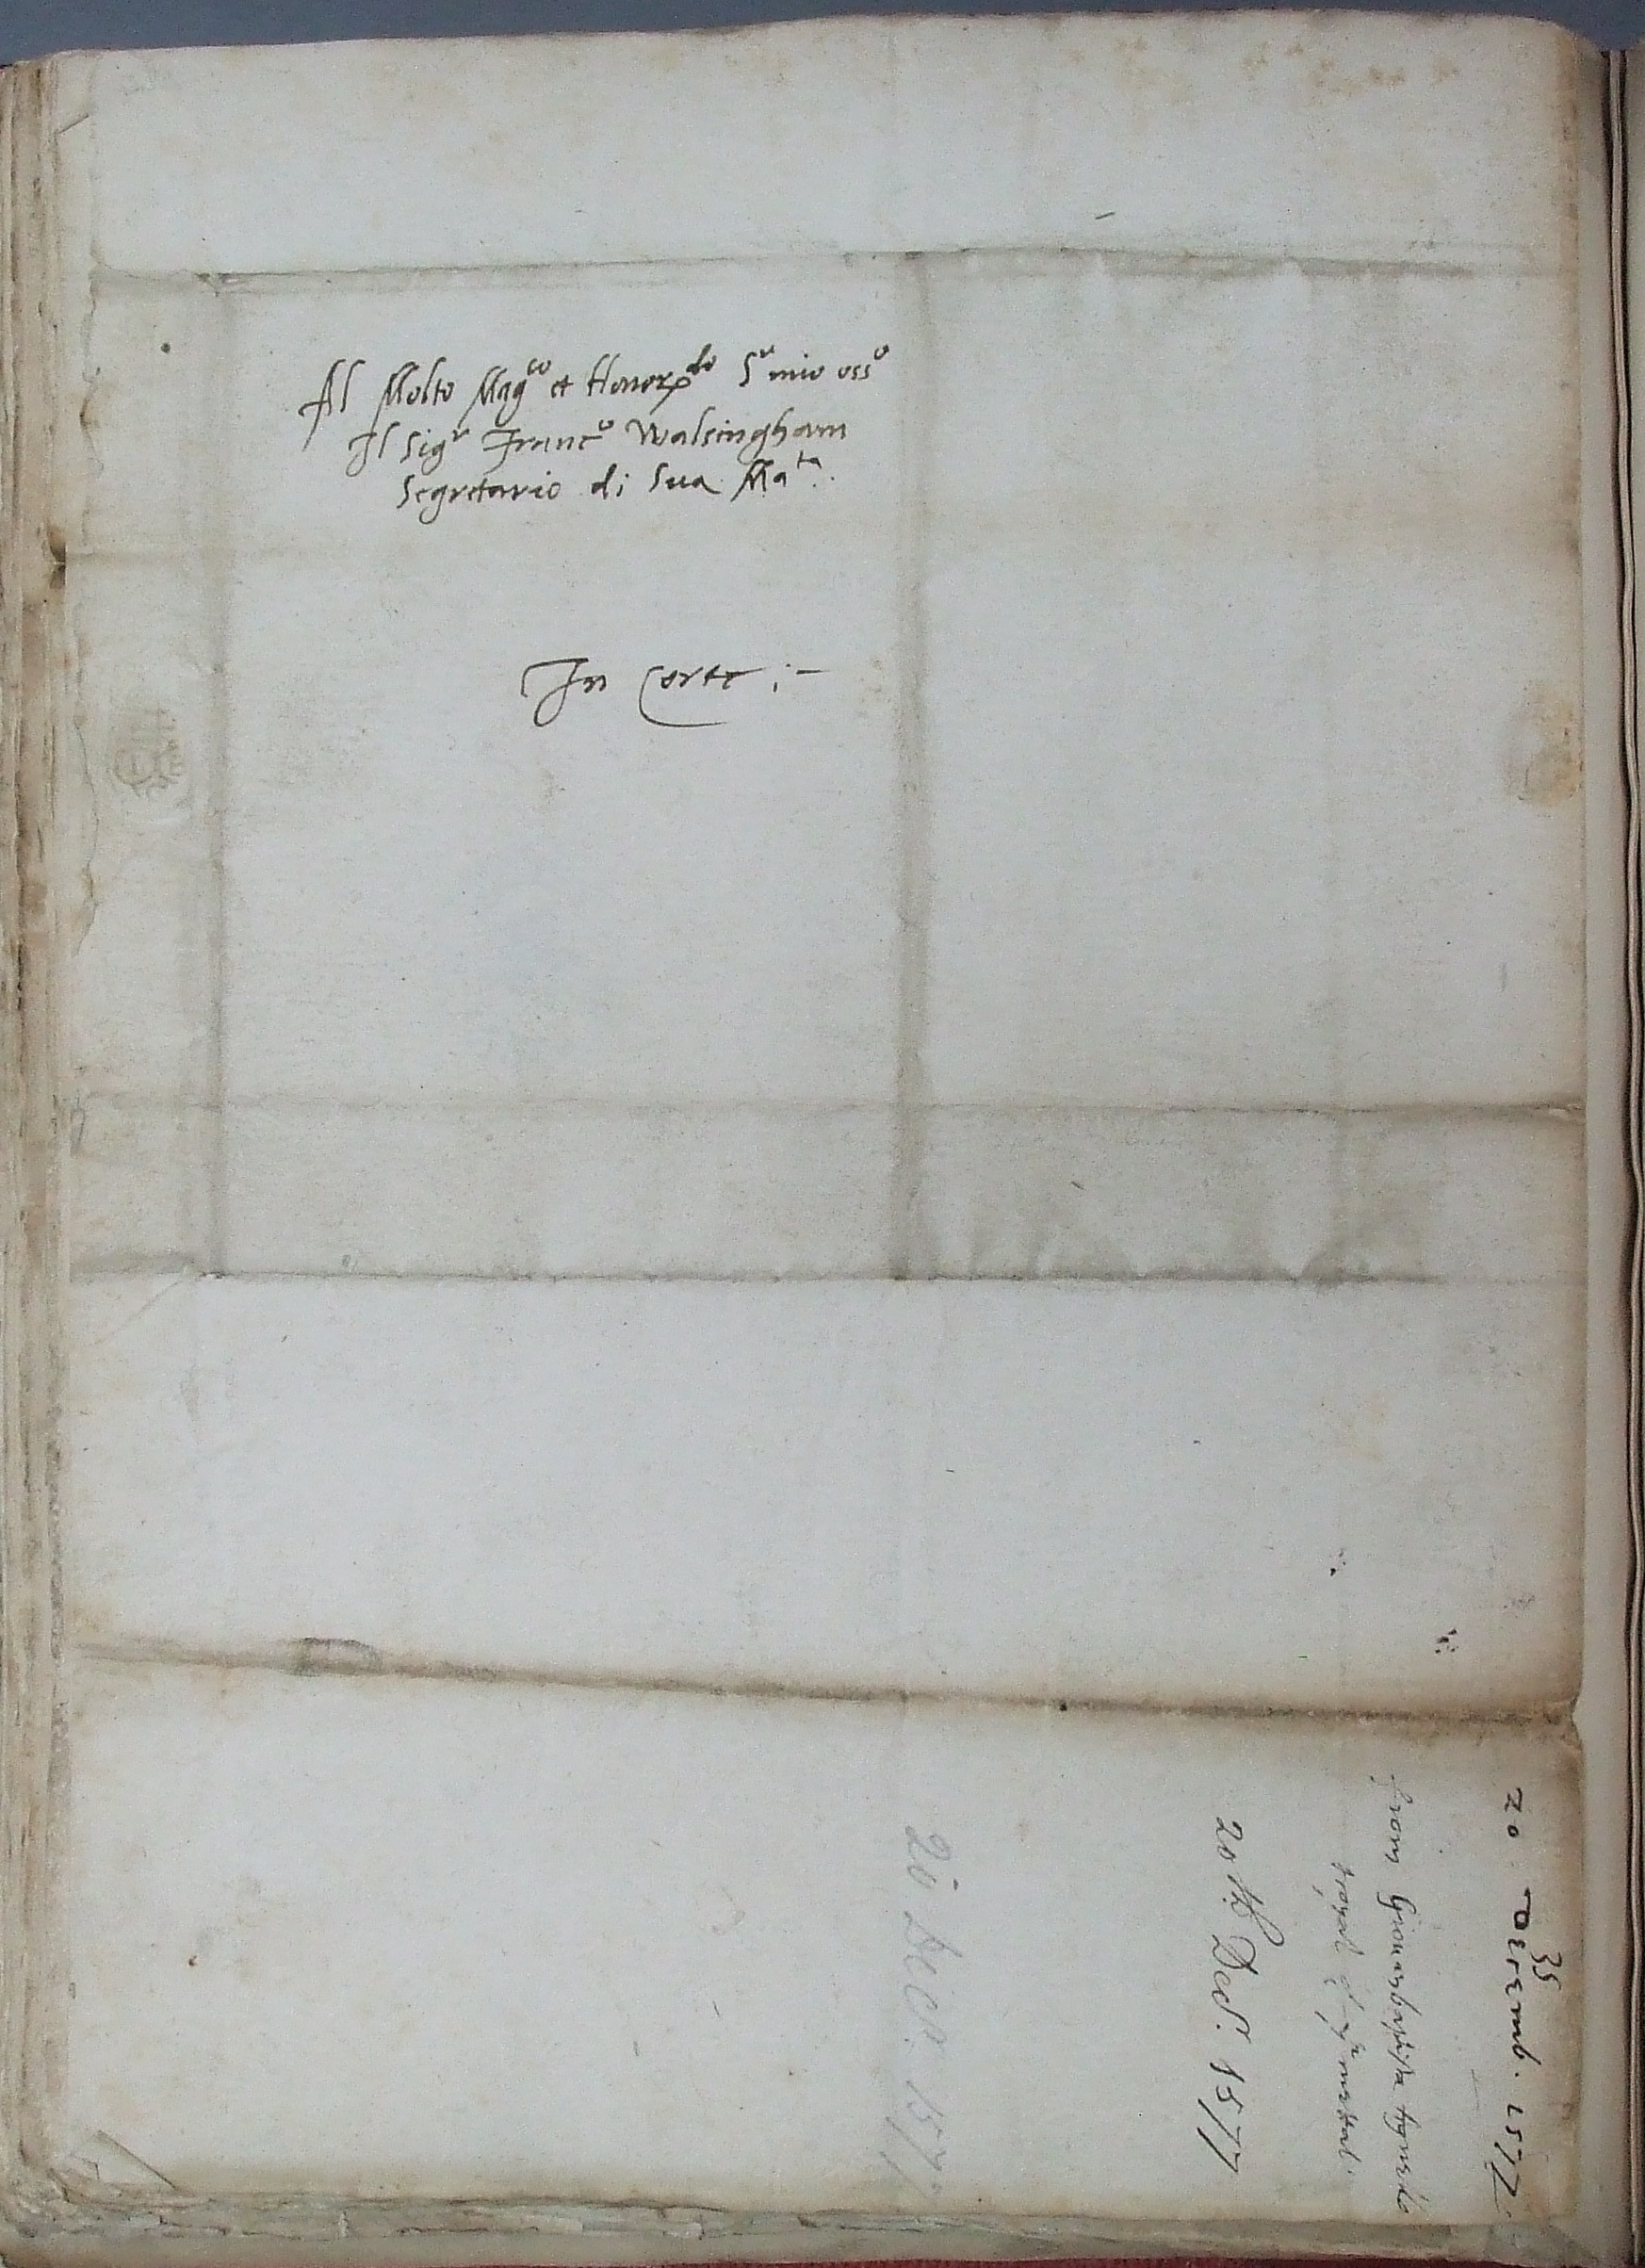 Al Molto Mag^co et Honor^do S^r mio oss^o
Il Sig^r Franc^o Walsingham
Segretario di Sua Ma^ta.
In Corte :-
20 Decemb. 1577
35
from Giouanbaptista
20th Dec^r. 1577
20 Decr. 1577